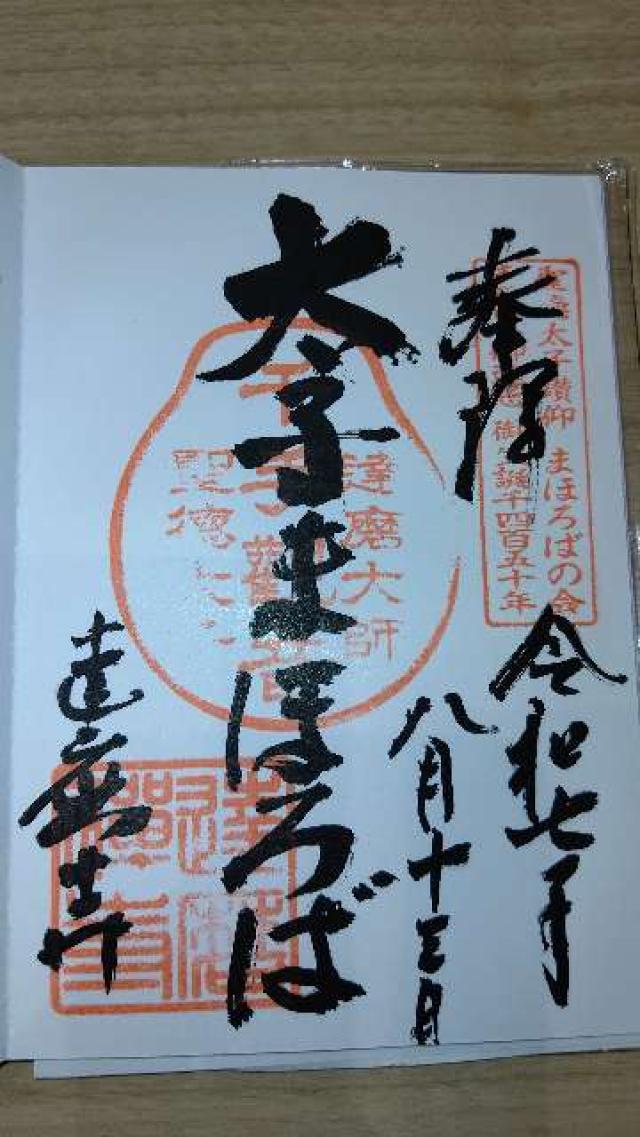 聖徳太子讃仰 まほろばの会
御生誕千四百五十年
奉拝
令和七年
八月十三日
太子まほろば
達磨大師
千手觀音
聖徳太子
達磨寺